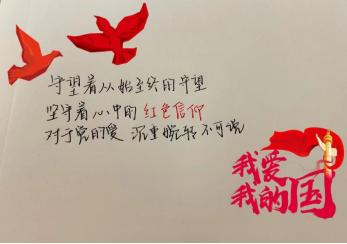 守望着从始至终的守望
坚守着心中的红色信仰
对于党的爱 沉重婉转不可说
我爱
我的国